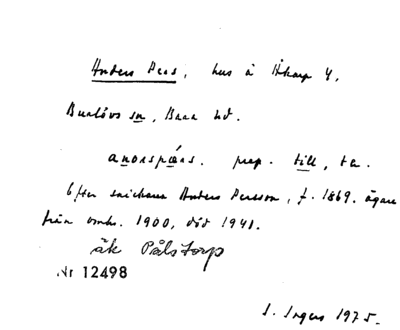 Anders Pers, hus å Åkarp 4,
Burlövs sn, Bara hd.
anərspæ̣rs. prep. till, ta.
Efter snickare Anders Persson, f. 1869. ägare
från omkr. 1900, död 1941.
äk Pålstorp
Nr 12498
I. Ingers 1975.